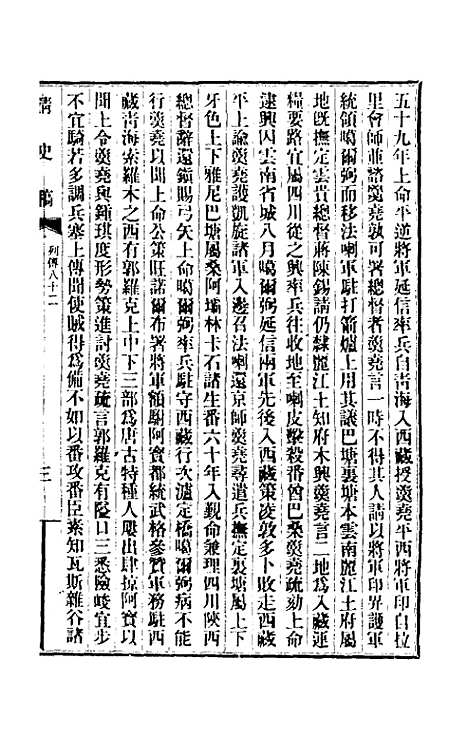 五十九年上命平逆將軍延信率兵自靑海入西藏授羹堯平西將軍印自拉
里會師並諮羹堯孰可署總督者羹堯言一時不得其人請以將軍印畀護軍
統領噶爾弼而移法喇軍駐打箭爐上用其議巴塘裏塘本雲南麗江土府屬
地旣撫定雲貴總督蔣陳錫請仍隸麗江土知府木興羹堯言二地爲入藏運
糧要路宜屬四川從之興率兵往收地至喇皮擊殺番酋巴桑羹堯疏劾上命
逮興囚雲南省城八月噶爾弼延信兩軍先後入西藏策凌敦多卜敗走西藏
平上諭羹堯護凱旋諸軍入邊召法喇還京師羹堯尋遣兵撫定裏塘屬上下
牙色上下雅尼巴塘屬桑阿壩林卡石諸生番六十年入覲命兼理四川陝西
總督辭還鎭賜弓矢上命噶爾弼率兵駐守西藏行次瀘定橋噶爾弼病不能
行羹堯以聞上命公策旺諾爾布署將軍額駙阿寶都統武格參贊軍務駐西
藏靑海索羅木之西有郭羅克上中下三部爲唐古特種人屢出肆掠阿寶以
聞上令羹堯與鎭琪度形勢策進討羹堯疏言郭羅克有隘口三悉險峻宜步
不宜騎若多調兵塞上傳聞使賊得爲備不如以番攻番臣素知瓦斯雜谷諸
清史稿
列傳八十二
三